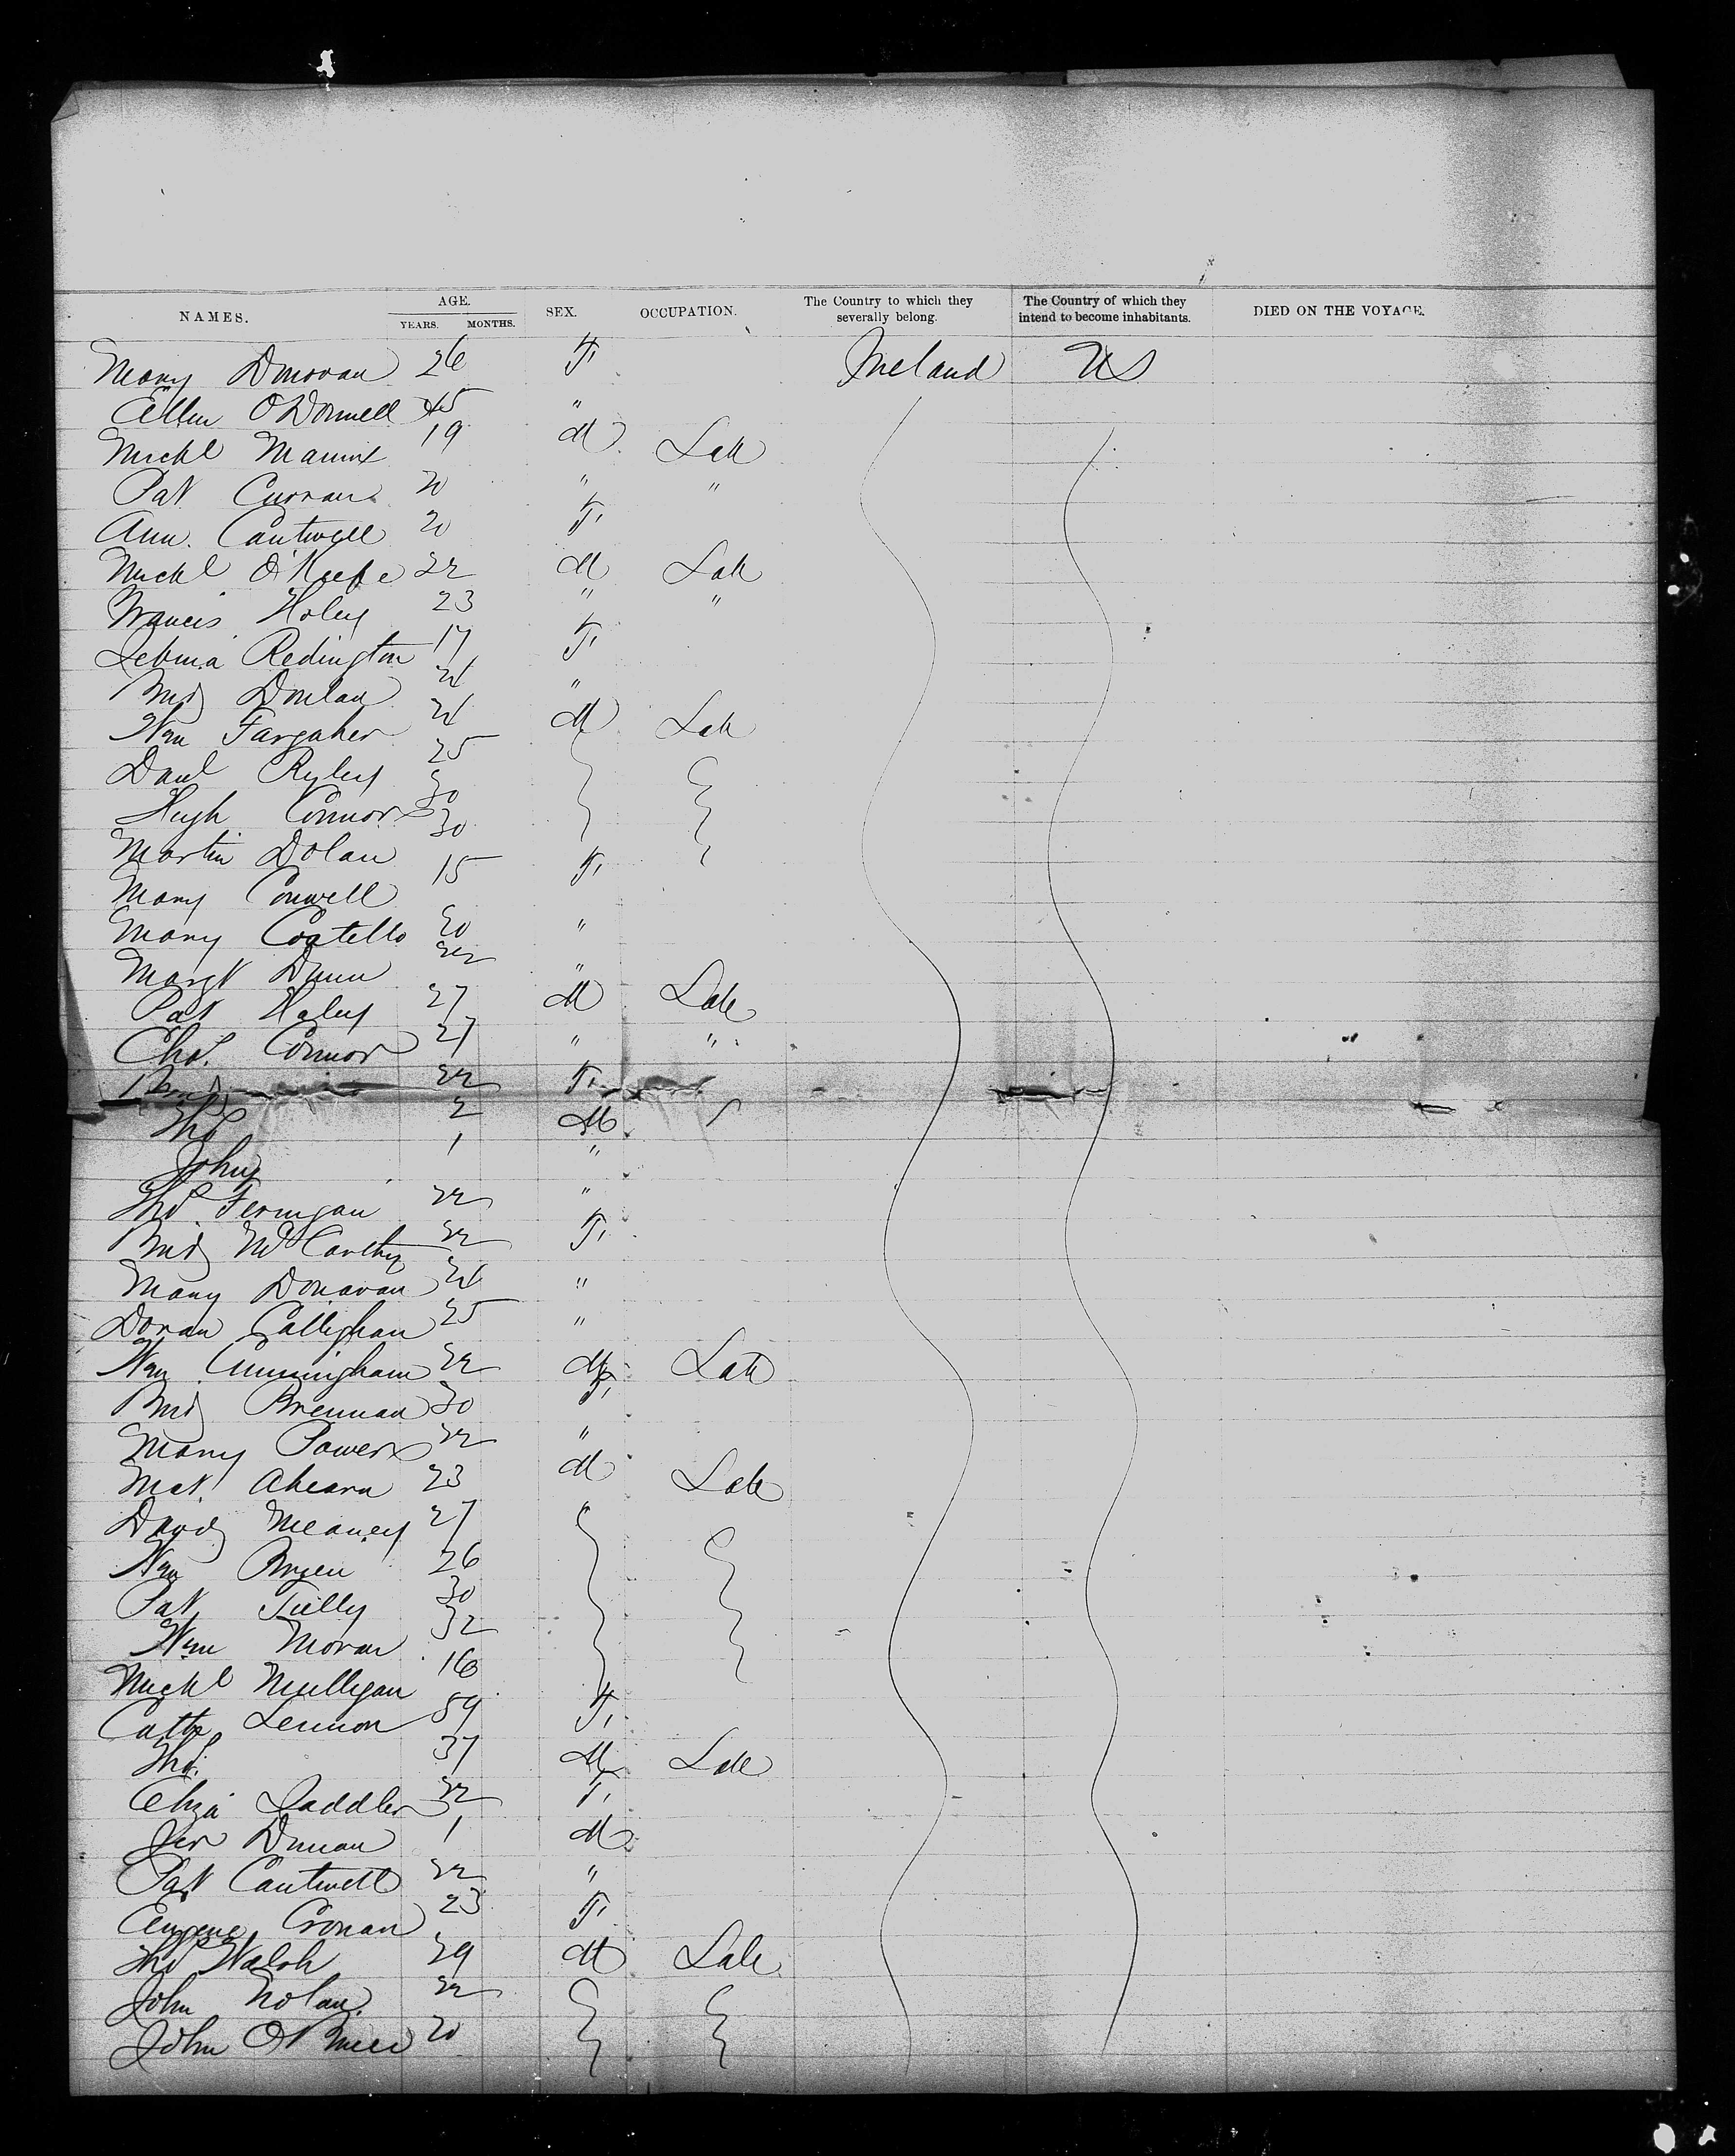 NAMES. AGE. YEARS. MONTHS. SEX. OCCUPATION. The Country to which they severally belong. The Country of which they intend to become inhabitants. DIED ON THE VOYAGE.
Mary Donovan 26 F Ireland US
Ellen O'Donnell 45 "
Michl Mannix 19 M Lab
Pat Curran 20 " "
Ann Cantwell 20 F
Michl O'Keefe 22 M Lab
Francis Holey 23 " "
Redington 17 F
Brid Donlan 24 "
Wm Fargaher 24 M Lab
Danl Ryley 25
Hugh Connors 30
Martin Dolan 30
Mary Conwell 15 F
Mary Costello 20 "
Margt Dunn 22 "
Pat Haley 27 M Lab
Chas. Connor 27 " "
Brid 22 F
Thos 2 M
John 1 "
Thos Fernigan 22 "
Brid McCarthy 22 F
Mary Donavan 24 "
Doran Callighan 25 "
Wm Cunningham 22 M Lab
Brid Brennan 30 F
Mary Powers 22 "
Mat. Ahearn 23 M Lab
David Meaney 27
Wm Bryen 26
Pat Tully 30
Wm Moran 32
Michl Mulligan 16
Cath Lennon 59 F
Thos. 37 M Lab
Eliza Saddler 22 F
Jer 1 M
Pat Cantwell 22 "
Eugene Cronan 23 F
Thos Walsh 29 M Lab
John Nolan 22
John O'Brien 20